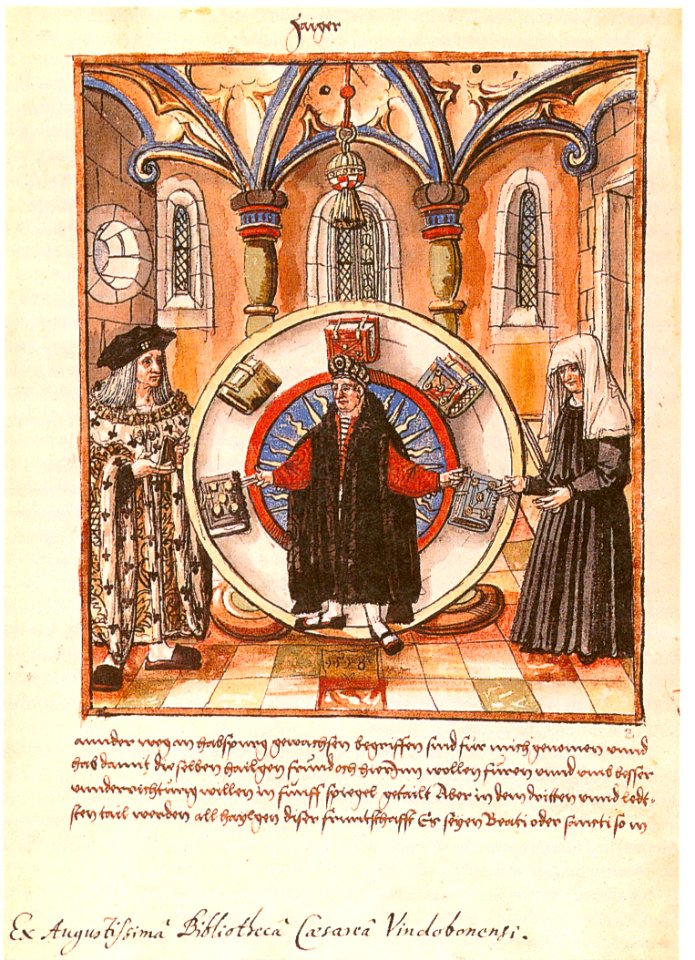 Zaiger
1518
2
annder weg an habspurg gewachsen begriffen sind für mich genomen unnd
hab damit die selben hailgen freünd och hierJnn wollen füren unnd umb besser
underrichtung willen in fünff spiegel getailt Aber in dem dritten unnd ledt-
sten tail werden all haylgen diser fruntschafft Es seyen Beati oder sancti so in
Ex Augustissimâ Bibliothecâ Cæsareâ Vindobonensi.